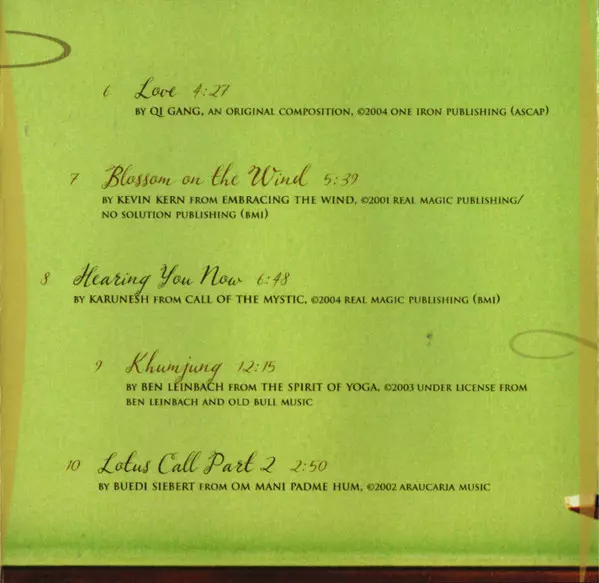 6 Love 4:27
BY QI GANG, AN ORIGINAL COMPOSITION, ©2004 ONE IRON PUBLISHING (ASCAP)
7 Blossom on the Wind 5:39
BY KEVIN KERN FROM EMBRACING THE WIND, ©2001 REAL MAGIC PUBLISHING/
NO SOLUTION PUBLISHING (BMI)
8 Hearing You Now 6:48
BY KARUNESH FROM CALL OF THE MYSTIC, ©2004 REAL MAGIC PUBLISHING (BMI)
9 Khumjung 12:15
BY BEN LEINBACH FROM THE SPIRIT OF YOGA, ©2003 UNDER LICENSE FROM
BEN LEINBACH AND OLD BULL MUSIC
10 Lotus Call Part 2 2:50
BY BUEDI SIEBERT FROM OM MANI PADME HUM, ©2002 ARAUCARIA MUSIC